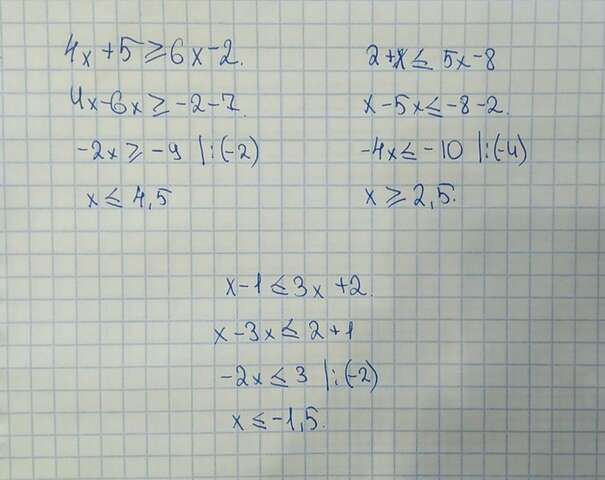 4x+5≥6x-2.
4x-6x≥-2-7.
-2x≥-9 |:(-2)
x≤4,5
2+x≤5x-8
x-5x≤-8-2.
-4x≤-10 |:(-4)
x≥2,5.
x-1≤3x+2.
x-3x≤2+1
-2x≤3 |:(-2)
x≤-1,5.